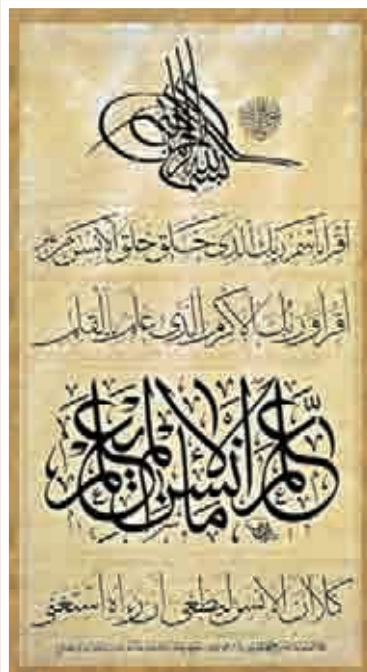 بسم الله الرحمن الرحيم
اقرأ باسم ربك الذى خلق خلق الانسن من
اقرأ وربك الاكرم الذى علم بالقلم
علم الانسن ما لم يعلم
كلا ان الانسن ليطغى ان رءاه استغنى